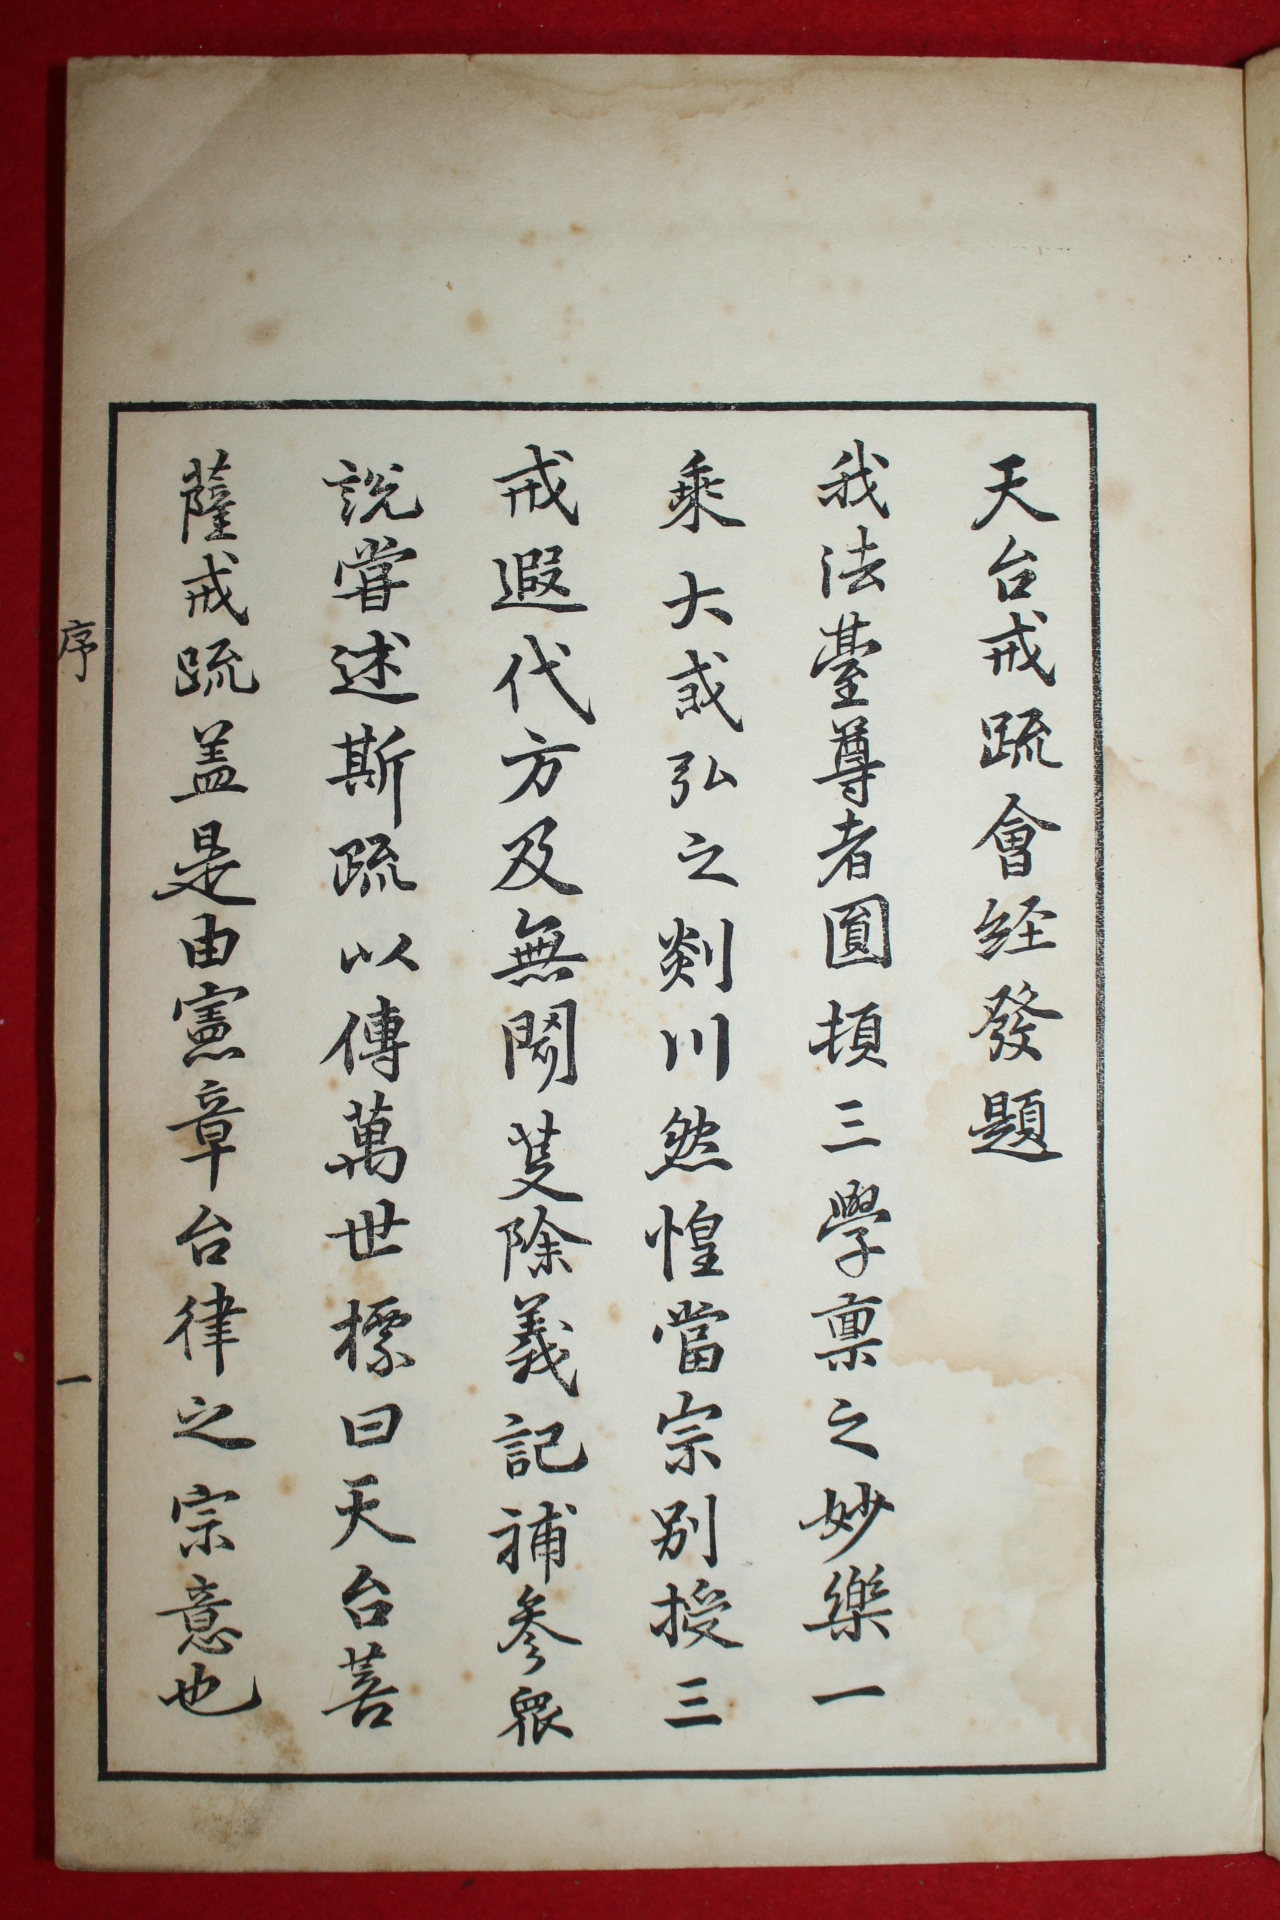 天台戒疏會経發題
我法臺尊者圓頓三學稟之妙樂一
乘大戒弘之剡川然惶當宗別授三
戒遐代方及無閡荁除義記補參眾
說嘗述斯疏以傳萬世標曰天台菩
薩戒疏盖是由憲章台律之宗意也
序
一